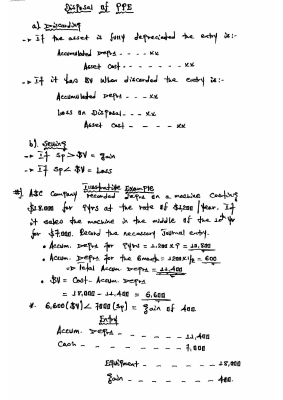 Disposal of PPE
a). Discarding
-> If the asset is fully depreciated the entry is:-
Accumulated Deprs - - - - xx
Asset Cost - - - - - - - xx
-> If it has BV when discarded the entry is:-
Accumulated Deprs - - - xx
Loss on Disposal - - - xx
Asset Cost - - - - - xx
b). Selling
-> If SP > BV = gain
-> If SP < BV = Loss
Illustrative Example
#). ABC Company recorded Deprs on a machine costing
$18,000 for 9yrs at the rate of $1200/year. If
it sales the machine in the middle of the 10th yr
for $7,000. Record the necessary Journal entry.
• Accum. Deprs for 9yrs = 1,200 x 9 = 10,800
• Accum. Deprs for the 6month = 1200 x 1/2 = 600
=> Total Accum Deprs = 11,400
• BV = Cost - Accum. Deprs
= 18,000 - 11,400 = 6,600
*. 6,600 (BV) < 7000 (SP) = gain of 400.
Entry
Accum. Deprs - - - - - 11,400
Cash - - - - - - - - 7,000
Equipment - - - - - - 18,000
gain - - - - - - - 400.